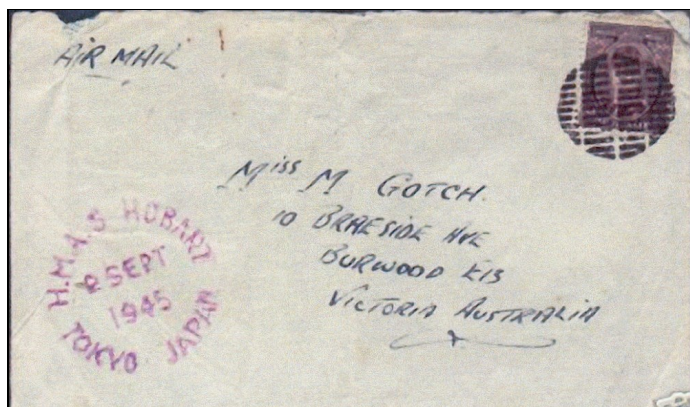 AIR MAIL
Miss M GOTCH.
10 BRAESIDE AVE
BURWOOD E13
VICTORIA AUSTRALIA
H.M.A.S HOBART
2 SEPT
1945
TOKYO JAPAN